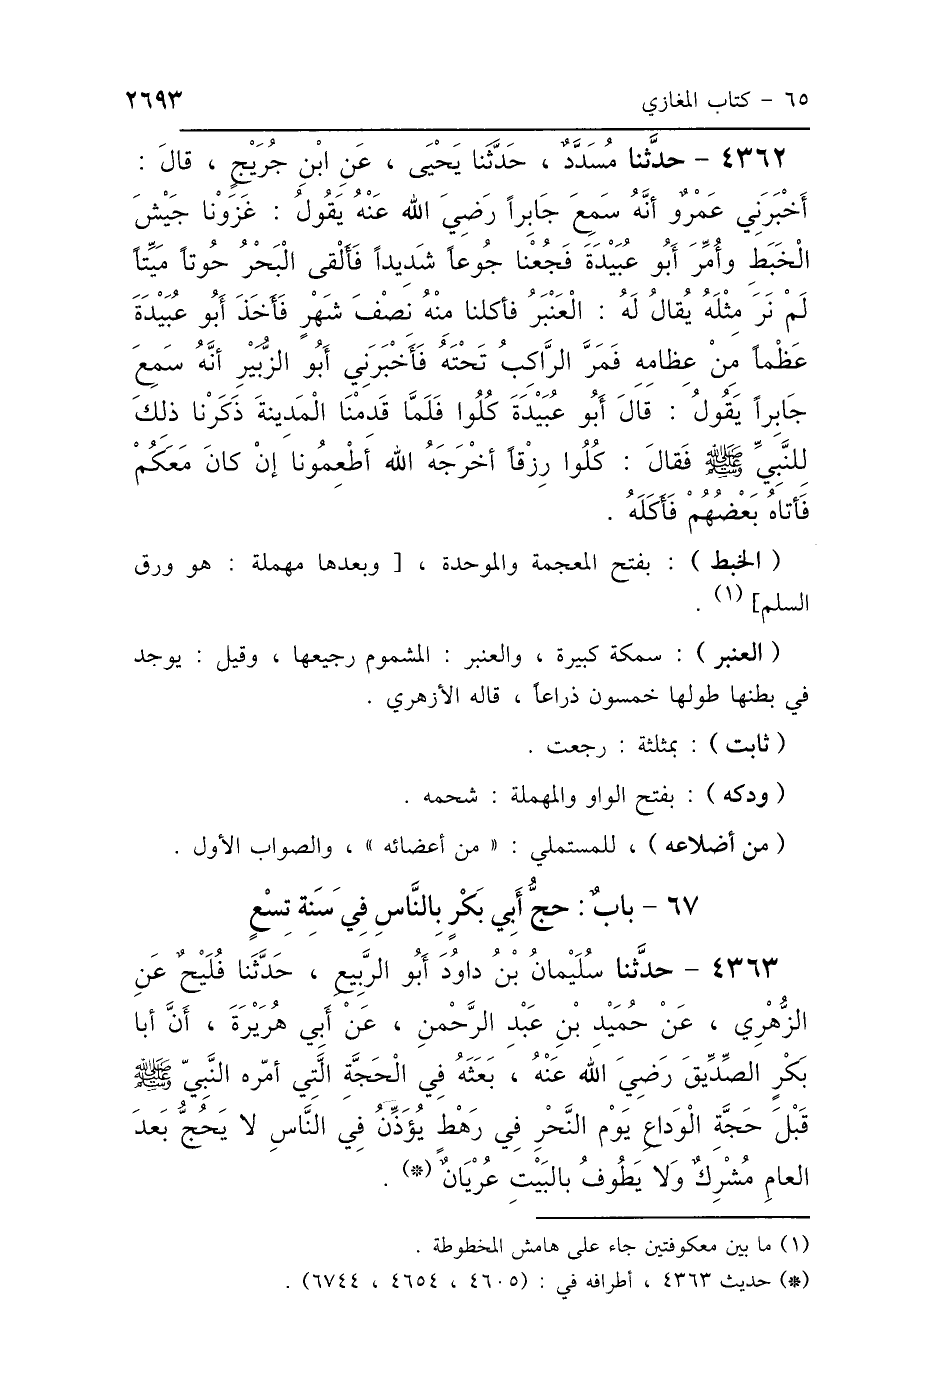 ٦٥ - كتاب المغازي ٢٦٩٣
٤٣٦٢ - حدثنا مُسَدَّدٌ ، حَدَّثَنا يَحْيَى ، عَنِ ابْنِ جُرَيْجٍ ، قالَ :
أَخْبَرَني عَمْرٌو أنَّهُ سَمِعَ جابِراً رَضِيَ الله عَنْهُ يَقُولُ : غَزَوْنا جَيْشَ
الْخَبَطِ وأُمِّرَ أَبُو عُبَيْدَةَ فَجُعْنا جُوعاً شَدِيداً فَأَلْقى الْبَحْرُ حُوتاً مَيِّتاً
لَمْ نَرَ مِثْلَهُ يُقالُ لَهُ : الْعَنْبَرُ فأكلنا مِنْهُ نِصْفَ شَهْرٍ فَأَخَذَ أَبُو عُبَيْدَةَ
عَظْماً مِنْ عِظامِهِ فَمَرَّ الرَّاكِبُ تَحْتَهُ فَأَخْبَرَني أَبُو الزُّبَيْرِ أنَّهُ سَمِعَ
جَابِراً يَقُولُ : قالَ أَبُو عُبَيْدَةَ كُلُوا فَلَمَّا قَدِمْنَا الْمَدِينَةَ ذَكَرْنا ذلِكَ
لِلنَّبِيِّ ﷺ فَقالَ : كُلُوا رِزْقاً أخْرَجَهُ الله أطْعِمُونا إنْ كانَ مَعَكُمْ
فَأتاهُ بَعْضُهُمْ فَأَكَلَهُ .
( الخبط ) : بفتح المعجمة والموحدة ، [ وبعدها مهملة : هو ورق
السلم] (١) .
( العنبر ) : سمكة كبيرة ، والعنبر : المشموم رجيعها ، وقيل : يوجد
في بطنها طولها خمسون ذراعاً ، قاله الأزهري .
( ثابت ) : بمثلثة : رجعت .
( ودكه ) : بفتح الواو والمهملة : شحمه .
( من أضلاعه ) ، للمستملي : « من أعضائه » ، والصواب الأول .
٦٧ - بابٌ : حجُّ أَبي بَكْرٍ بِالنَّاسِ فِي سَنَةِ تِسْعٍ
٤٣٦٣ - حدَّثنا سُلَيْمانُ بْنُ داوُدَ أَبُو الرَّبِيعِ ، حَدَّثَنا فُلَيْحٌ عَنِ
الزُّهْرِي ، عَنْ حُمَيْدِ بْنِ عَبْدِ الرَّحْمنِ ، عَنْ أَبِي هُرَيْرَةَ ، أَنَّ أبا
بَكْرٍ الصِّدِّيقَ رَضِيَ الله عَنْهُ ، بَعَثَهُ فِي الْحَجَّةِ الَّتِي أمّره النَّبِيّ ﷺ
قَبْلَ حَجَّةِ الْوَدَاعِ يَوْمَ النَّحْرِ فِي رَهْطٍ يُؤَذِّنُ فِي النَّاسِ لا يَحُجُّ بَعدَ
العامِ مُشْرِكٌ وَلا يَطُوفُ بالبَيْتِ عُرْيَانٌ (*) .
(١) ما بين معكوفتين جاء على هامش المخطوطة .
(*) حديث ٤٣٦٣ ، أطرافه في : (٤٦٠٥ ، ٤٦٥٤ ، ٦٧٤٤) .